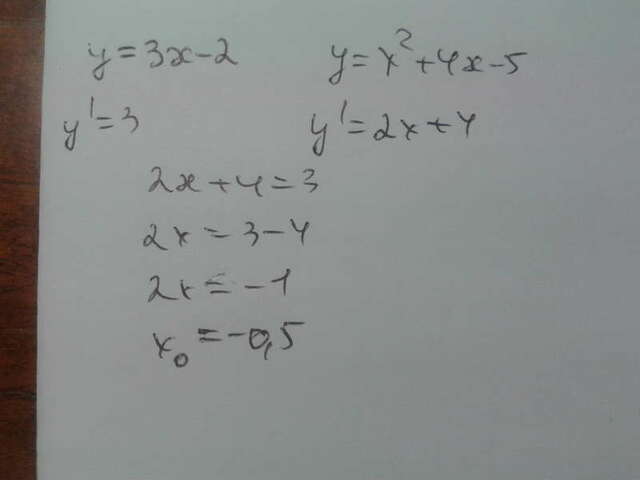 y = 3x - 2    y = x² + 4x - 5
y' = 3    y' = 2x + 4
2x + 4 = 3
2x = 3 - 4
2x = -1
x₀ = -0,5